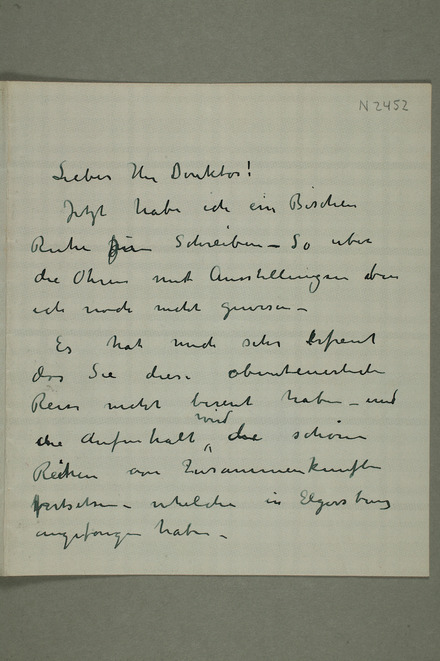 N 2452
Lieber Herr Direktor!
Jetzt habe ich ein Bischen
Ruhe zum Schreiben – So über
die Ohren mit Ausstellungen oben
ich noch nicht gewesen –
Es hat mich sehr erfreut
das Sie diese abenteuerliche
Reise nicht bereut haben – und
die Aufenhalt wird die schönen
Reihen von Zusammenkunften
fortsetzen – whelche in Elgersburg
angefangen haben –